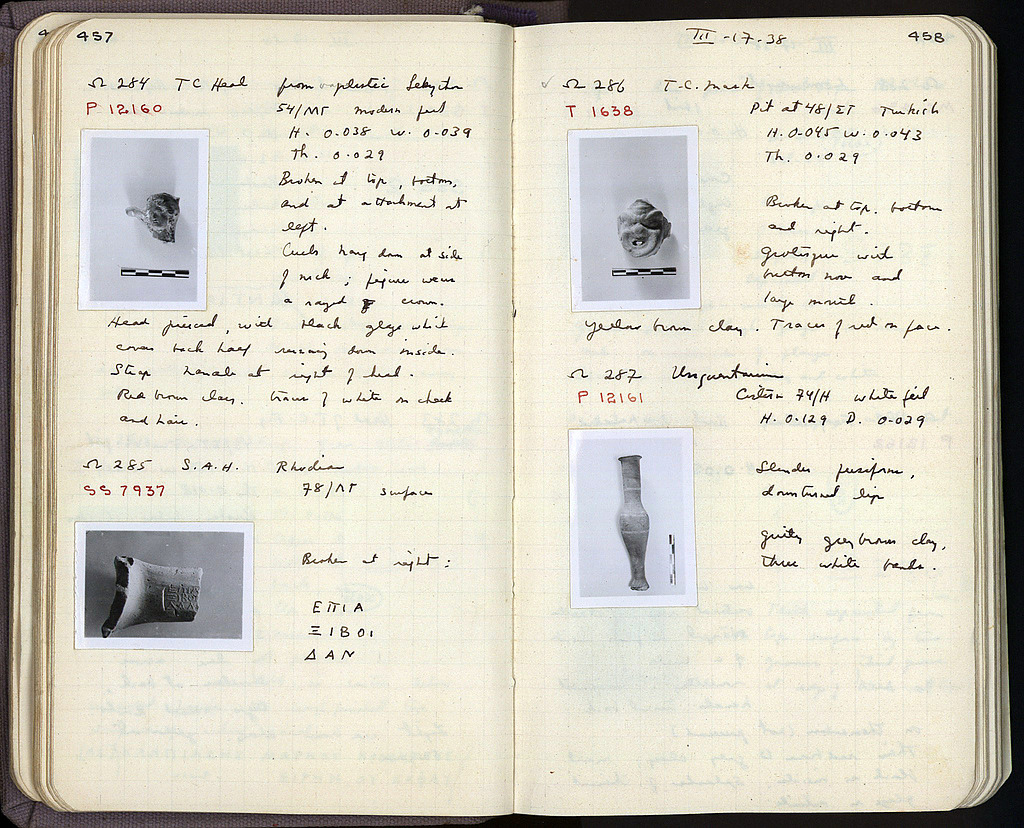 457
Ω 284 T C Head from a plastic Lekythos
P 12160 54/ΛΓ modern fill
H. 0.038 W. 0.039
Th. 0.029
Broken at top, bottom,
and at attachment at
left.
Curls hang down at side
of neck; figure wears
a rayed crown.
Head pierced, with black glaze which
covers back half running down inside.
Strap handle at right of head.
Red brown clay. Traces of white on cheek
and hair.
Ω 285 S.A.H. Rhodian
SS 7937 78/ΛΓ surface
Broken at right:
ΕΠΙΑ
ΞΙΒΟΙ
ΔΑΝ
III -17-38 458
Ω 286 T.C. mask
T 1638 Pit at 48/ΣΤ Turkish
H. 0.045 W. 0.043
Th. 0.029
Broken at top, bottom
and right.
Grotesque with
button nose and
large mouth.
Yellow brown clay. Traces of red on face.
Ω 287 Unguentarium
P 12161 Cistern 74/Η white fill
H. 0.129 D. 0.029
Slender fusiform,
downturned lip
gritty grey brown clay,
three white bands.